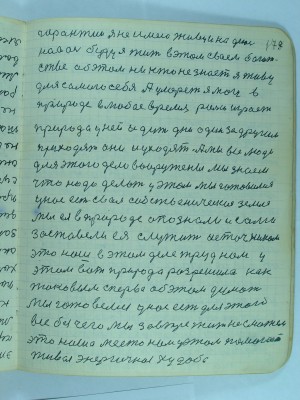 гарантии я не имею живу и на ден
нахоч буду я жит в этом своем богат
стве об этом никто не знает я живу
для самого себя А умереть я могу в
природе в любое время рол играет
природа у ней идут дни один за другим
приходят они и уходят А мы все люди
для этого дело вооружены мы знаем
что надо делат у этом мы готовимся
у нас есть своя собственическая земля
мы ея в природе опознали и сами
заставели ея служит источником
это наш в этом деле труд нам у
этом вот природа разрешила как
таковым сперва об этом думат
мы готовели у нас ест для этого
все без чего мы завтре жит не сможем
это наше место нам у этом помогает
живая энергичная худоба
178